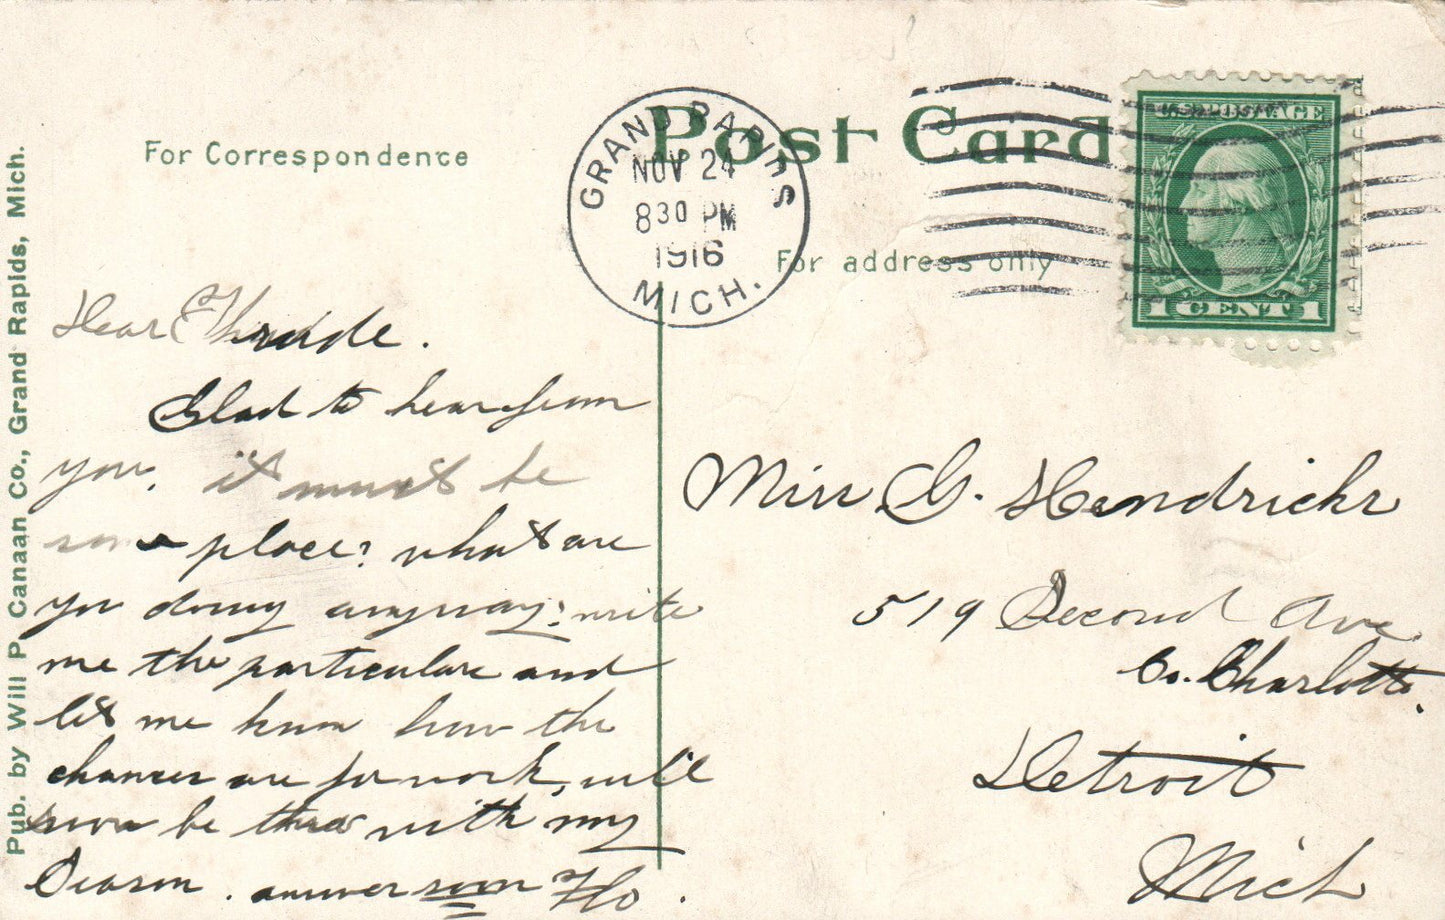 Post Card
For Correspondence
For address only
GRAND RAPIDS
NOV 24
8 30 PM
1916
MICH.
U.S. POSTAGE
1 CENT 1
Pub. by Will P. Canaan Co., Grand Rapids, Mich.
Dear
Glad to hear from
you, it must be
some place? what are
you doing anyway? write
me the particulars and
let me know how the
chances are for work, will
soon be thro with my
Season. answer soon Flo.
Miss. G. Hendricks
519 Second Ave.
Co. Charlotte.
Detroit
Mich